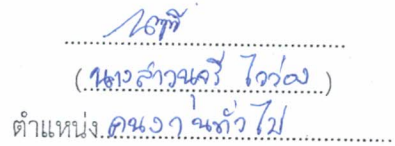 (นางสาวนจรี ไวว่อง)
ตำแหน่ง คนงานทั่วไป